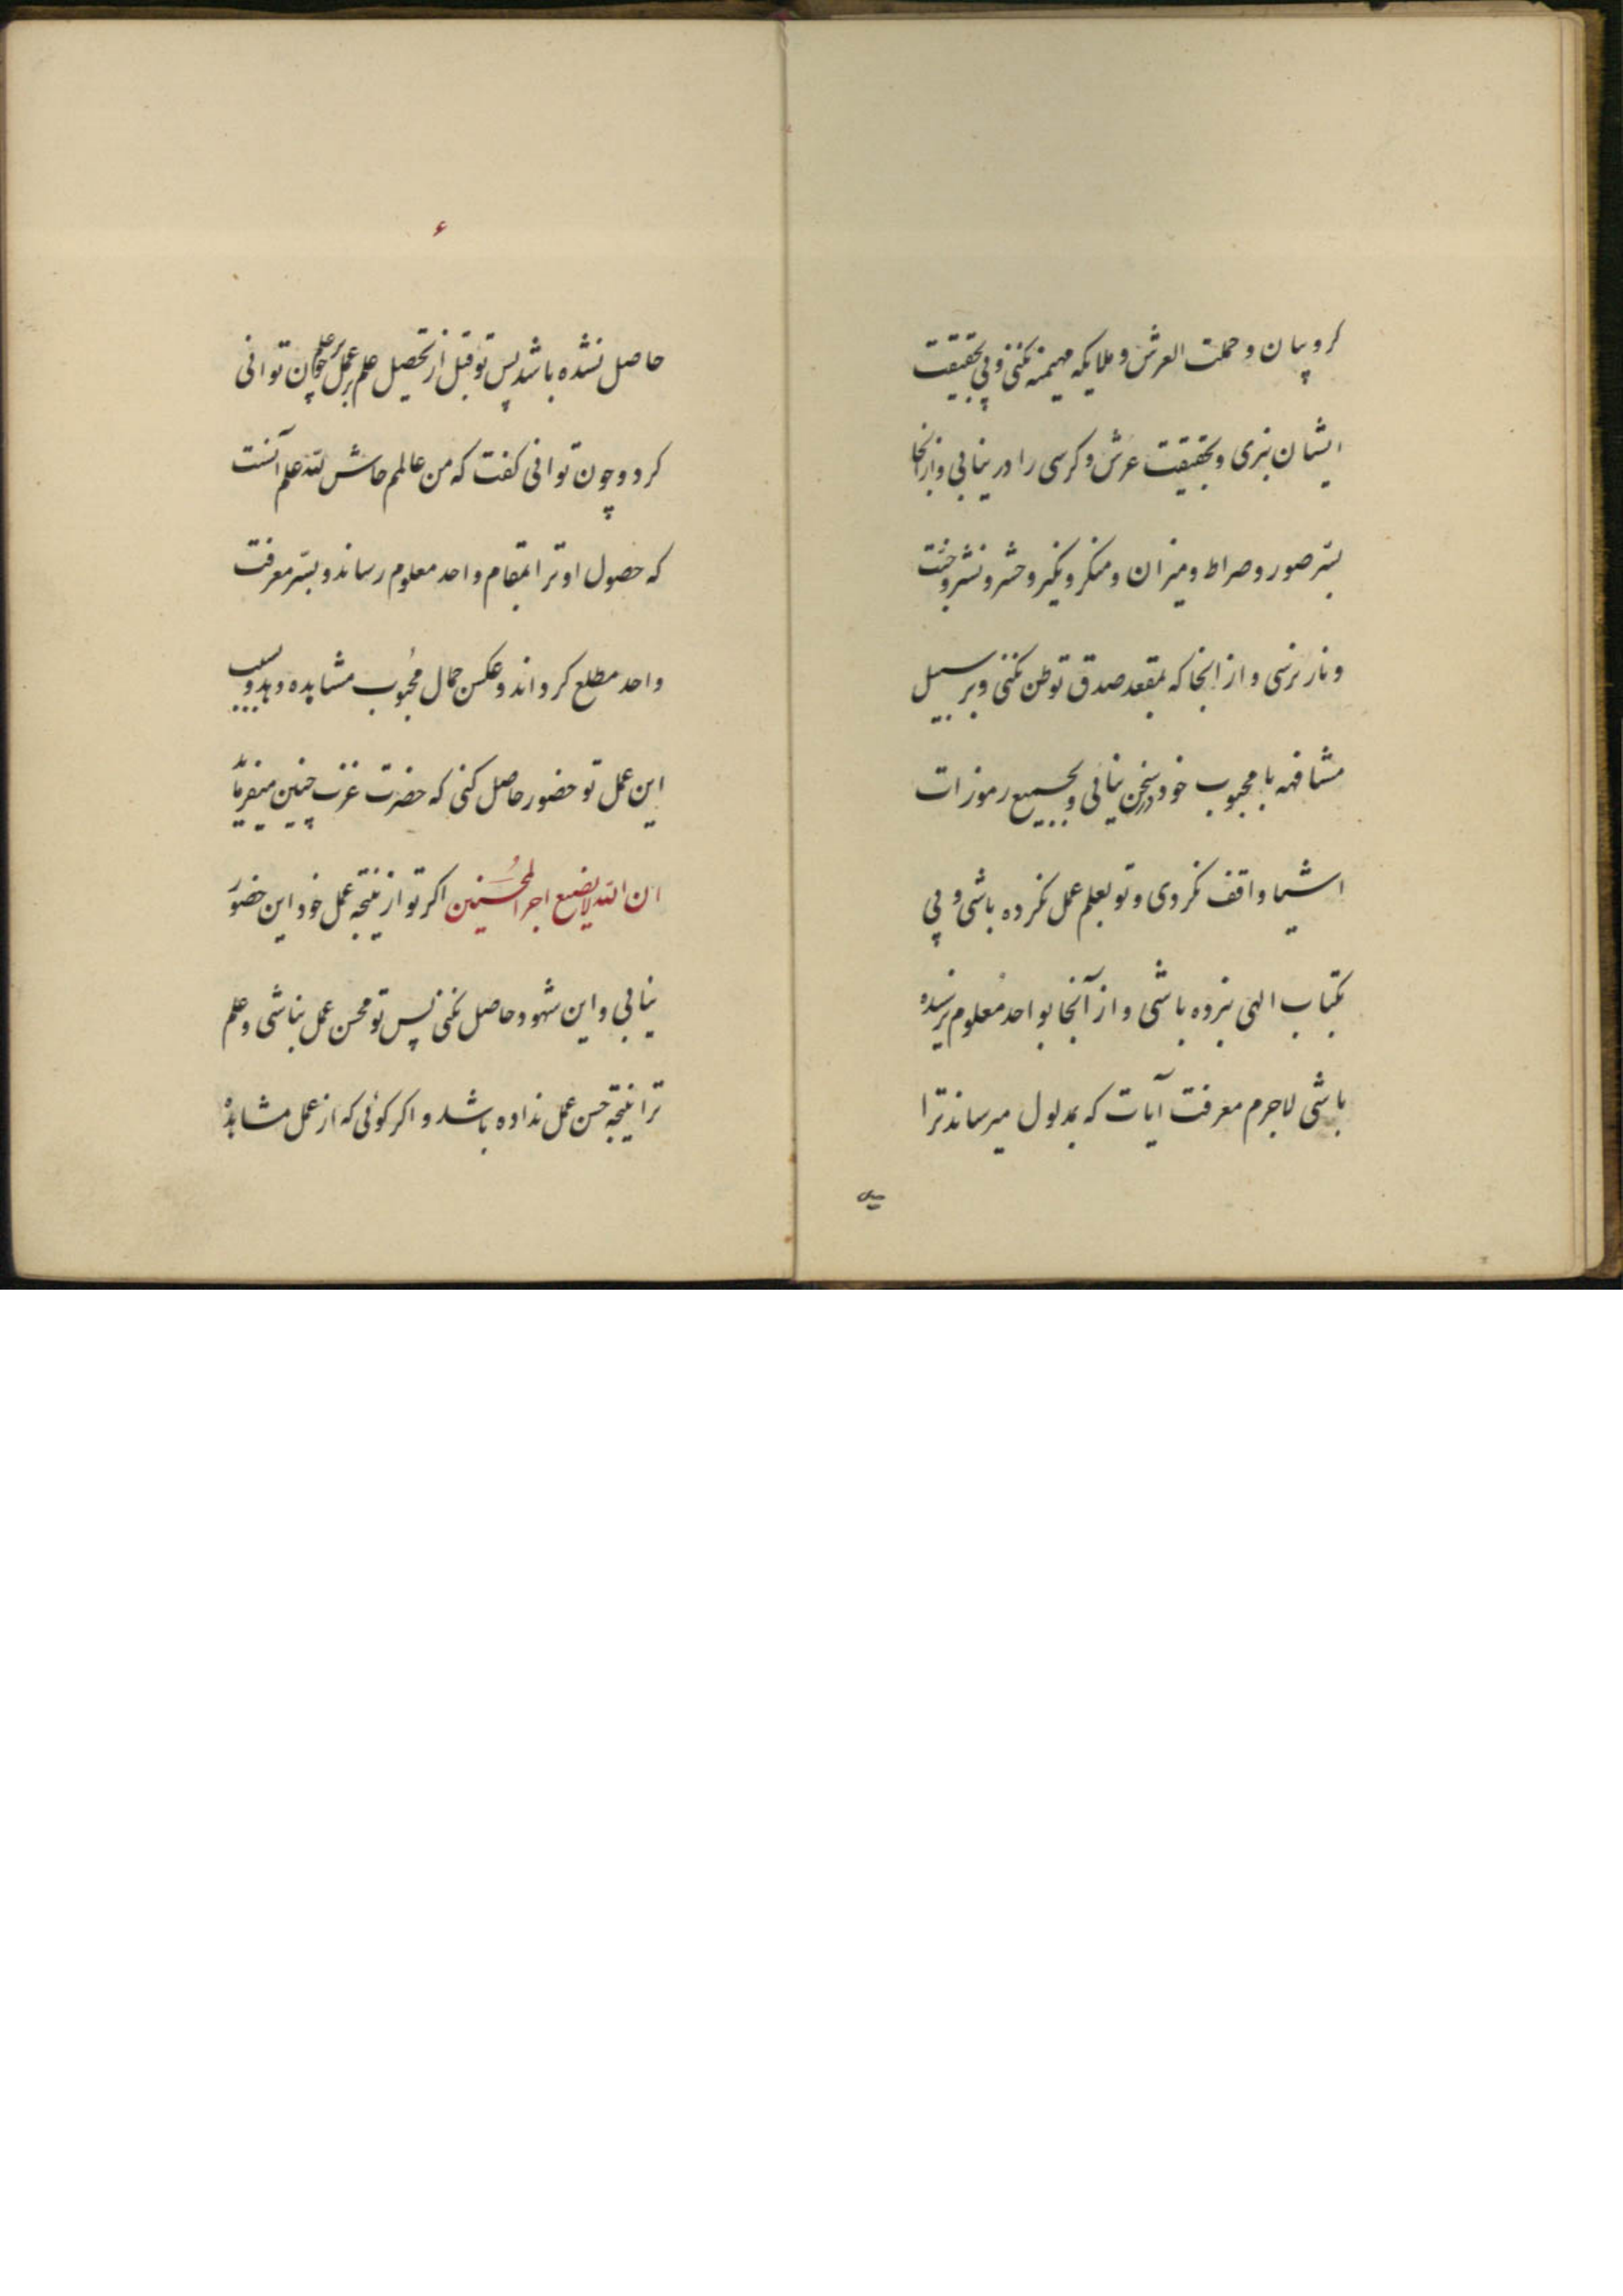 کروبیان و حملت العرش و ملایکه مهیمنه نکنی و پی بحقیقت
ایشان نبری و بحقیقت عرش و کرسی را در نیابی و از انجا
بسر صور و صراط و میزان و منکر و نکیر و حشر و نشر و جنت
و نار نرسی و از انجا که بمقعد صدق توطن نکنی و بر سبیل
مشافهه با محبوب خود در سخن نیائی و بجمیع رموزات
اشیا واقف نکردی و تو بعلم عمل نکرده باشی و پی
بکتاب الهی نبرده باشی و از آنجا بواحد معلوم نرسیده
باشی لاجرم معرفت آیات که بمدلول میرساند ترا
۶
حاصل نشده باشد پس تو قبل از تحصیل علم بر عمل چون توانی
کرد و چون توانی کفت که من عالمم حاش لله علم آنست
که حصول او ترا بمقام واحد معلوم رساند و بسر معرفت
واحد مطلع کرداند و عکس جمال محبوب مشاهده و بدو بسبب
این عمل تو حضور حاصل کنی که حضرت عزت چنین میفرماید
ان الله لا یضیع اجر المحسنین اکر تو از نتیجه عمل خود این حضور
نیابی و این شهود حاصل نکنی پس تو محسن عمل نباشی و علم
ترا نتیجه حسن عمل نداده باشد و اکر کوئی که از عمل مشاهده